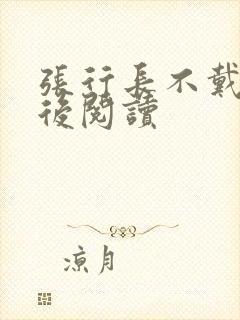 張行長不戴
後閱讀
涼月